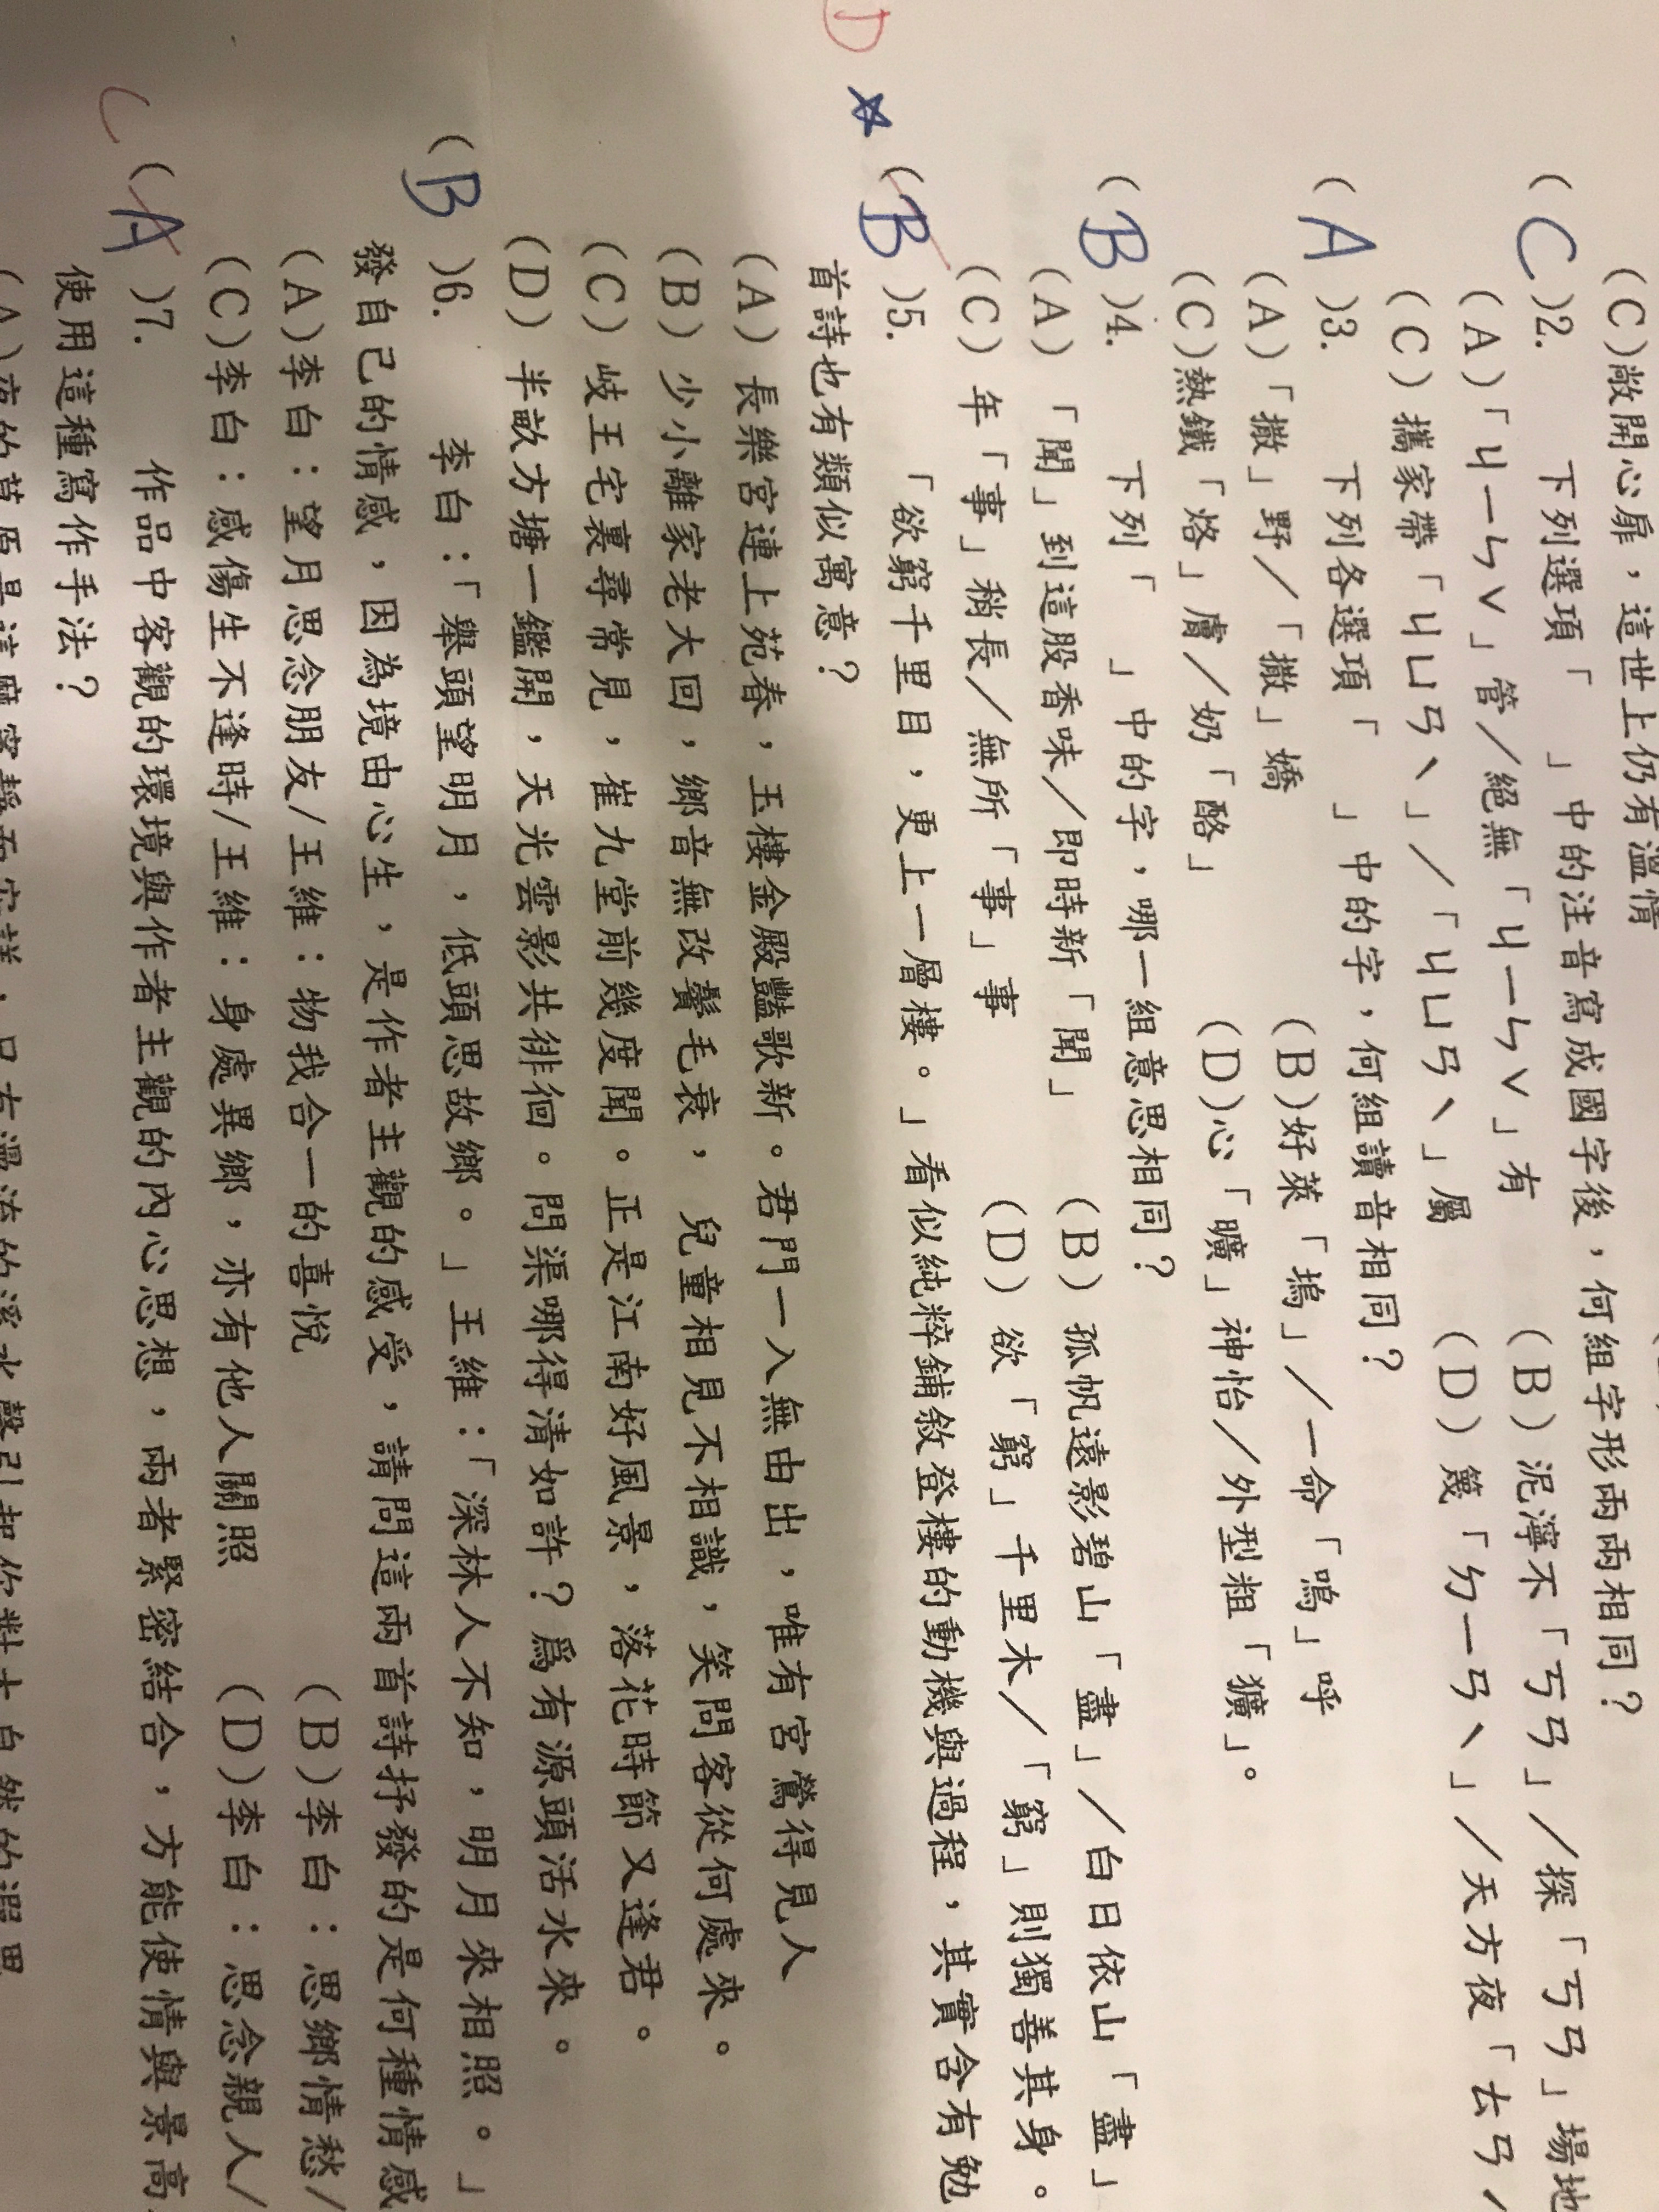 (C)敞開心扉，這世上仍有溫情
(C)2. 下列選項「 」中的注音寫成國字後，何組字形兩兩相同？
(A)「ㄐㄧㄣˇ」管／絕無「ㄐㄧㄣˇ」有 (B)泥濘不「ㄎㄢ」／探「ㄎㄢ」場地
(C)攜家帶「ㄐㄩㄢˋ」／「ㄐㄩㄢˋ」屬 (D)篾「ㄉㄧㄢˋ」／天方夜「ㄊㄢˊ
(A)3. 下列各選項「 」中的字，何組讀音相同？
(A)「撒」野／「撒」嬌 (B)好萊「塢」／一命「嗚」呼
(C)熱鐵「烙」膚／奶「酪」 (D)心「曠」神怡／外型粗「獷」。
(B)4. 下列「 」中的字，哪一組意思相同？
(A)「聞」到這股香味／即時新「聞」 (B)孤帆遠影碧山「盡」／白日依山「盡」
(C)年「事」稍長／無所「事」事 (D)欲「窮」千里木／「窮」則獨善其身。
D ☆(B)5. 「欲窮千里目，更上一層樓。」看似純粹鋪敘登樓的動機與過程，其實含有勉
首詩也有類似寓意？
(A)長樂宮連上苑春，玉樓金殿豔歌新。君門一入無由出，唯有宮鶯得見人
(B)少小離家老大回，鄉音無改鬢毛衰，兒童相見不相識，笑問客從何處來。
(C)岐王宅裏尋常見，崔九堂前幾度聞。正是江南好風景，落花時節又逢君。
(D)半畝方塘一鑑開，天光雲影共徘徊。問渠哪得清如許？為有源頭活水來。
(B)6. 李白：「舉頭望明月，低頭思故鄉。」王維：「深林人不知，明月來相照。」
發自己的情感，因為境由心生，是作者主觀的感受，請問這兩首詩抒發的是何種情感
(A)李白：望月思念朋友/王維：物我合一的喜悅 (B)李白：思鄉情愁/
(C)李白：感傷生不逢時/王維：身處異鄉，亦有他人關照 (D)李白：思念親人/
C (A)7. 作品中客觀的環境與作者主觀的內心思想，兩者緊密結合，方能使情與景高
使用這種寫作手法？